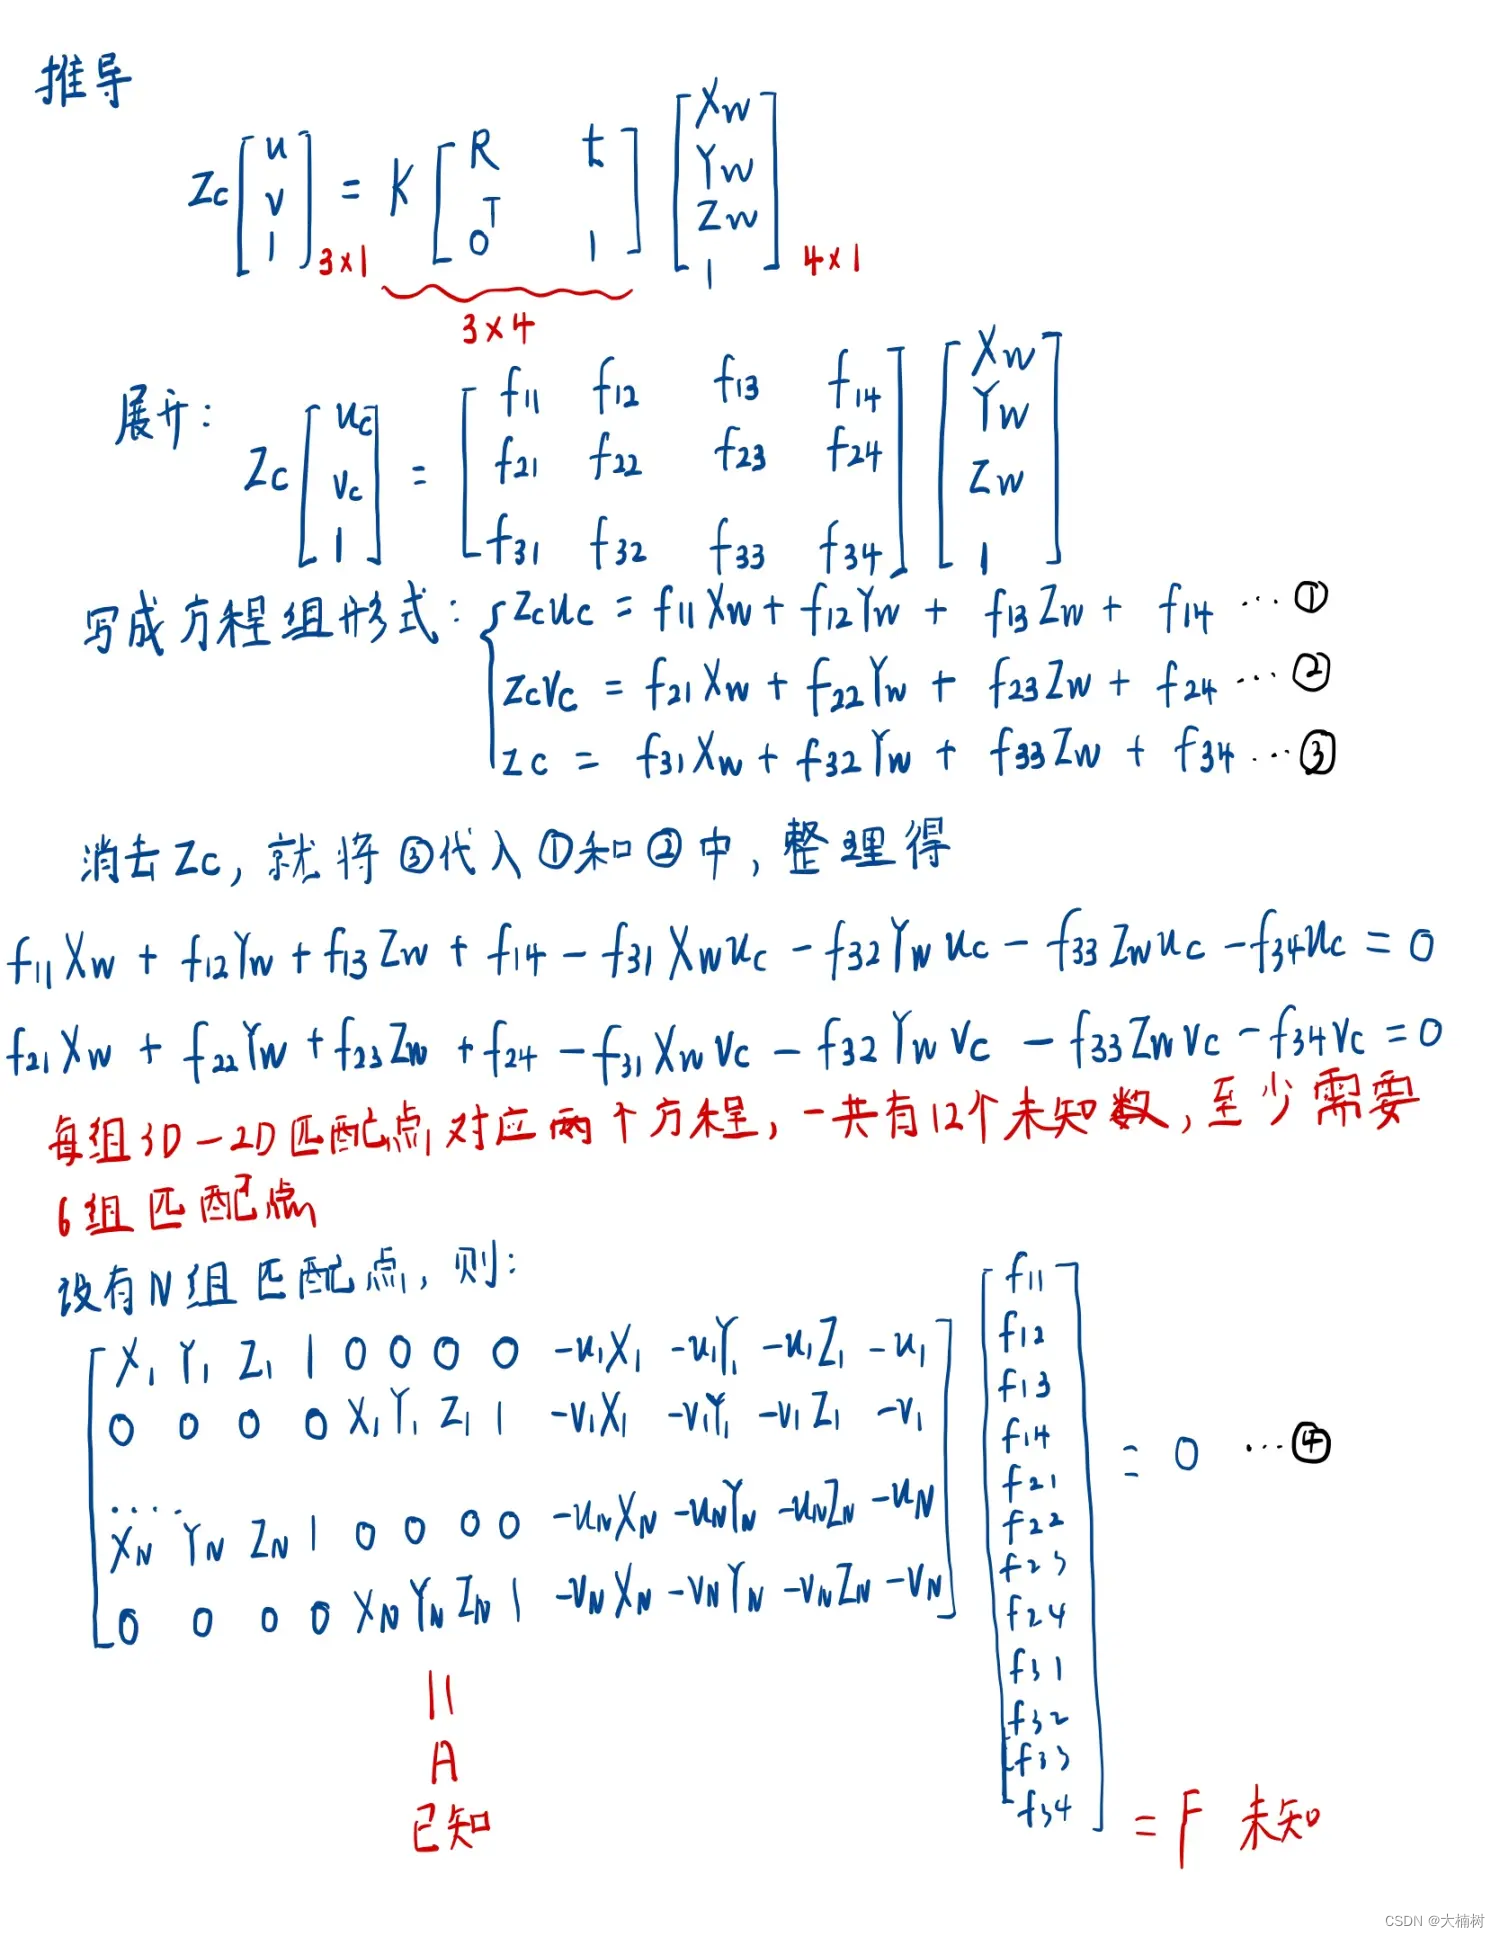 推导
Zc [u v 1] 3×1 = K [R t 0^T 1] [Xw Yw Zw 1] 4×1
3×4
展开: Zc [uc vc 1] = [f11 f12 f13 f14 f21 f22 f23 f24 f31 f32 f33 f34] [Xw Yw Zw 1]
写成方程组形式: { Zcuc = f11Xw + f12Yw + f13Zw + f14 ··· ①
Zcvc = f21Xw + f22Yw + f23Zw + f24 ··· ②
Zc = f31Xw + f32Yw + f33Zw + f34 ··· ③
消去Zc, 就将③代入①和②中, 整理得
f11Xw + f12Yw + f13Zw + f14 - f31Xwuc - f32Ywuc - f33Zwuc - f34uc = 0
f21Xw + f22Yw + f23Zw + f24 - f31Xwvc - f32Ywvc - f33Zwvc - f34vc = 0
每组3D-2D匹配点对应两个方程, 一共有12个未知数, 至少需要
6组匹配点
设有N组匹配点, 则:
X1 Y1 Z1 1 0 0 0 0 -u1X1 -u1Y1 -u1Z1 -u1
0 0 0 0 X1 Y1 Z1 1 -v1X1 -v1Y1 -v1Z1 -v1
·····
XN YN ZN 1 0 0 0 0 -uNXN -uNYN -uNZN -uN
0 0 0 0 XN YN ZN 1 -vNXN -vNYN -vNZN -vN
f11
f12
f13
f14
f21
f22
f23
f24
f31
f32
f33
f34
= 0 ··· ④
=
A
已知
= F 未知
CSDN @大楠树